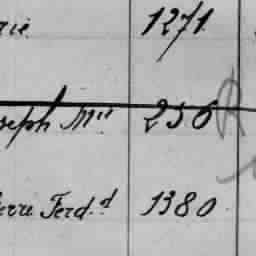 rie 1271
seph Mie 256 R
ierre Ferd.d 1380